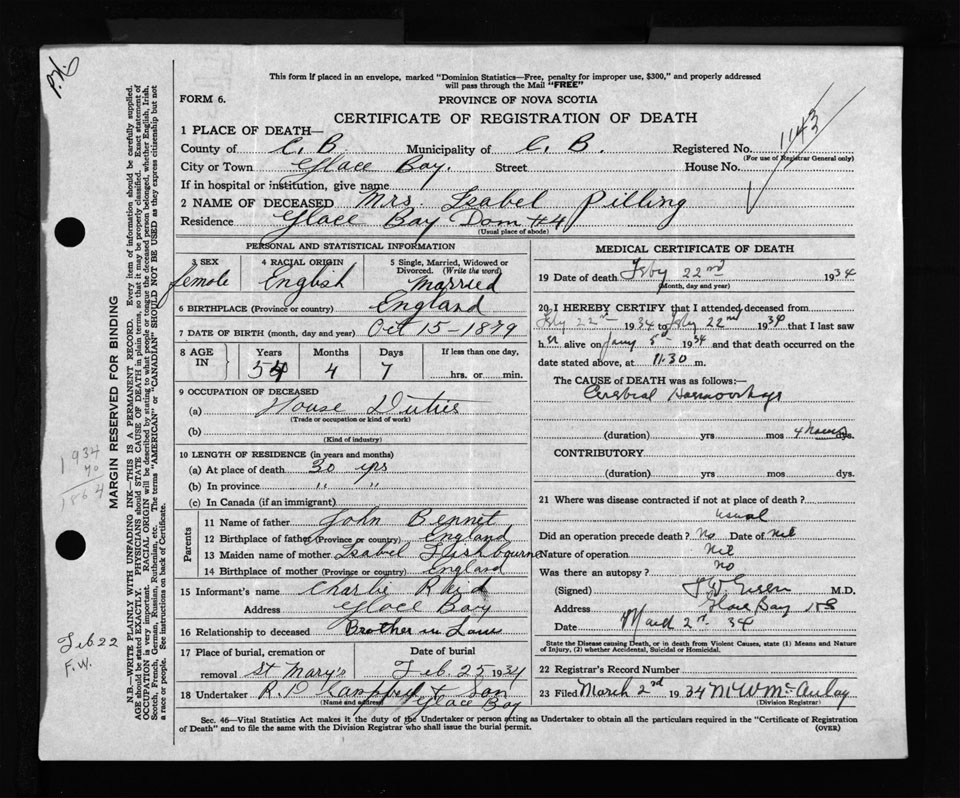 P.N.
This form if placed in an envelope, marked "Dominion Statistics—Free, penalty for improper use, $300," and properly addressed
will pass through the Mail "FREE"
FORM 6.
PROVINCE OF NOVA SCOTIA
CERTIFICATE OF REGISTRATION OF DEATH
1143
1 PLACE OF DEATH—
County of C. B. Municipality of C. B. Registered No.
(For use of Registrar General only)
City or Town Glace Bay. Street House No.
If in hospital or institution, give name
2 NAME OF DECEASED Mrs. Isabel Pilling
Residence Glace Bay Dom #4
(Usual place of abode)
PERSONAL AND STATISTICAL INFORMATION
3 SEX 4 RACIAL ORIGIN 5 Single, Married, Widowed or
Divorced. (Write the word)
female English Married
6 BIRTHPLACE (Province or country) England
7 DATE OF BIRTH (month, day and year) Oct 15-1879
8 AGE IN Years Months Days If less than one day,
54 4 7 hrs. or min.
9 OCCUPATION OF DECEASED
(a) House Duties
(Trade or occupation or kind of work)
(b)
(Kind of industry)
10 LENGTH OF RESIDENCE (in years and months)
(a) At place of death 30 yrs
(b) In province " "
(c) In Canada (if an immigrant)
Parents
11 Name of father John Bennet
12 Birthplace of father (Province or country) England
13 Maiden name of mother Isabel Fishbourne
14 Birthplace of mother (Province or country) England
15 Informant's name Charlie Reid
Address Glace Bay
16 Relationship to deceased Brother in Law
17 Place of burial, cremation or Date of burial
removal St Mary's Feb. 25 1934
18 Undertaker R. D & Son
(Name and address) Glace Bay
MEDICAL CERTIFICATE OF DEATH
19 Date of death Feby 22nd 1934
(Month, day and year)
20 I HEREBY CERTIFY that I attended deceased from
Feby 22nd 1934 to Feby 22nd 1934 that I last saw
her alive on Jany 5 1934 and that death occurred on the
date stated above, at 11.30 m.
The CAUSE OF DEATH was as follows:—
Cerebral Haemorrhage
(duration) yrs mos 4 hours dys.
CONTRIBUTORY
(duration) yrs. mos. dys.
21 Where was disease contracted if not at place of death?
usual
Did an operation precede death? No Date of Nil
Nature of operation Nil
Was there an autopsy? No
(Signed) M.D.
Address Glace Bay NS
Date March 2nd 34
State the Disease causing Death, or in death from Violent Causes, state (1) Means and Nature
of Injury, (2) whether Accidental, Suicidal or Homicidal.
22 Registrar's Record Number
23 Filed March 2nd 1934 McAulay
(Division Registrar)
Sec. 46—Vital Statistics Act makes it the duty of the Undertaker or person acting as Undertaker to obtain all the particulars required in the "Certificate of Registration
of Death" and to file the same with the Division Registrar who shall issue the burial permit.
(OVER)
MARGIN RESERVED FOR BINDING
N.B.—WRITE PLAINLY WITH UNFADING INK—THIS IS A PERMANENT RECORD. Every item of information should be carefully supplied.
AGE should be stated EXACTLY. PHYSICIANS should STATE CAUSE OF DEATH in plain terms, so that it may be properly classified. Exact statement of
OCCUPATION is very important. RACIAL ORIGIN will be described by stating to what people or tongue the deceased person belonged, whether English, Irish,
Scotch, French, German, Russian, Ruthenian, etc. The terms "AMERICAN" or "CANADIAN" SHOULD NOT BE USED as they express citizenship but not
a race or people. See instructions on back of Certificate.
1934
70
1864
Feb 22
F.W.